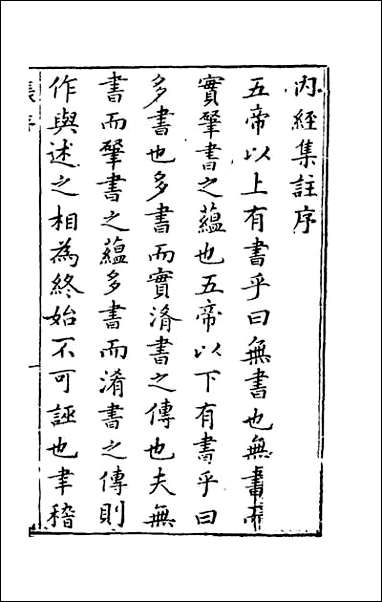 內經集註序
五帝以上有書乎曰無書也無書而
實肇書之蘊也五帝以下有書乎曰
多書也多書而實淆書之傳也夫無
書而肇書之蘊多書而淆書之傳則
作與述之相為終始不可誣也聿稽